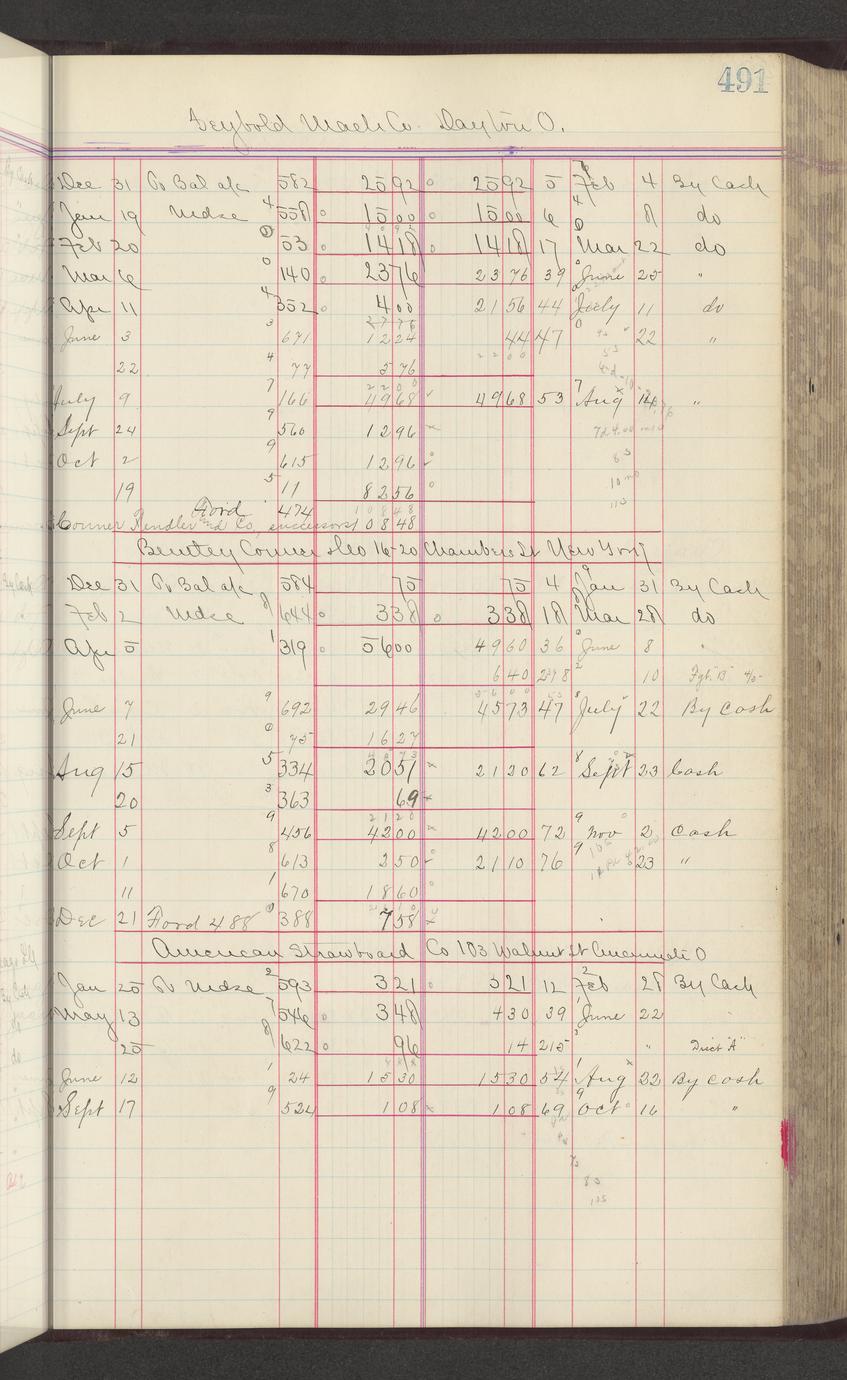 491
Seybold Mach Co. Dayton O.
Dec 31 To Bal a/c 582 25 92 25 92 5 Feb 4 By Cash
Jan 19 Mdse 558 15 00 15 00 6 8 do
Feb 20 53 14 18 14 18 17 Mar 22 do
Mar 6 140 23 76 23 76 39 June 25 "
Apr 11 352 4 00 21 56 44 July 11 do
June 3 671 12 24 44 47 22 "
22 77 5 76
July 9 166 49 68 49 68 53 Aug 14 "
Sept 24 560 12 96
Oct 2 615 12 96
19 11 82 56
Ford 474 108 48
Conner Fendler and Co, successors 108 48
Bentley Conner & Co 16-20 Chambers St New York
Dec 31 To Bal a/c 584 75 75 4 Jan 31 By Cash
Feb 2 Mdse 644 3 38 3 38 18 Mar 28 do
Apr 5 319 56 00 49 60 36 June 8 "
6 40 278 10 Fgt "B" 4/5
June 7 692 29 46 45 73 47 July 22 By Cash
21 75 16 27
Aug 15 334 20 51 21 20 62 Sept 23 Cash
20 363 69
Sept 5 456 42 00 42 00 72 Nov 2 Cash
Oct 1 613 2 50 21 10 76 23 "
11 670 18 60
Dec 21 Ford 488 388 7 58
American Strawboard Co 103 Walnut St Cincinnati O
Jan 25 To Mdse 593 3 21 3 21 12 Feb 28 By Cash
May 13 546 3 48 4 30 39 June 22 "
25 622 96 14 215 " Disct "A"
June 12 24 15 30 15 30 54 Aug 22 By Cash
Sept 17 524 1 08 1 08 69 Oct 16 "